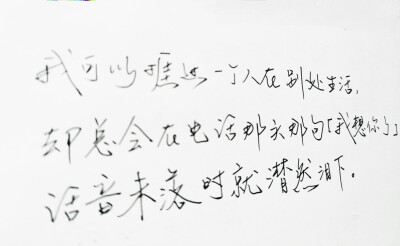 我可以瞧一个人在别处生活,
却总会在电话那头那句「我想你了」
话音未落时就潸然泪下。